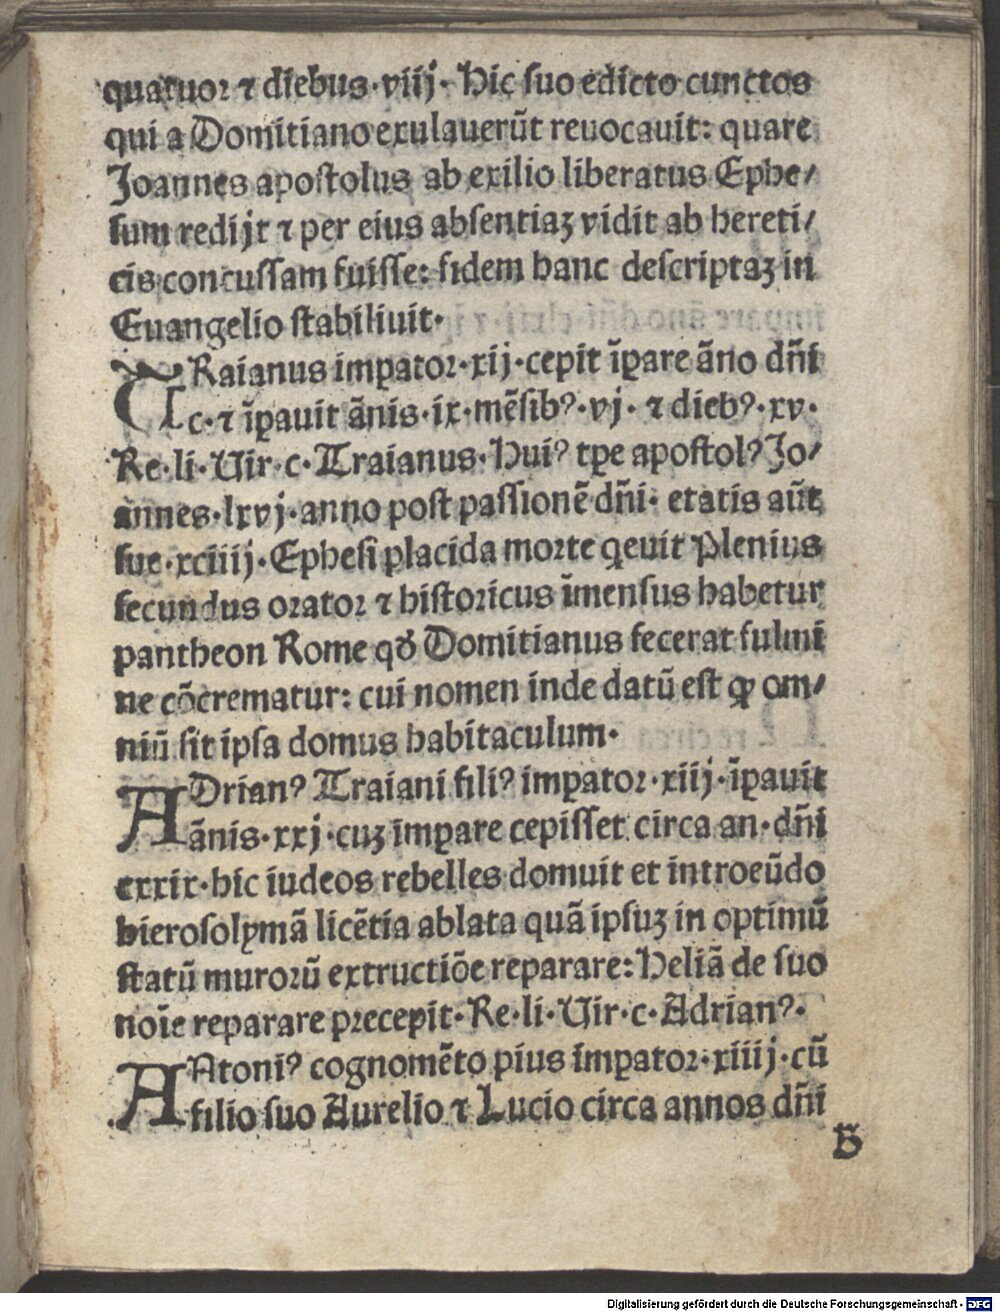 quatuor ⁊ diebus·viij· Hic ſuo edicto cunctos
qui a Domitiano exulauerūt reuocauit: quare
Joannes apoſtolus ab exilio liberatus Ephe/
ſum redijt ⁊ per eius abſentiaꝫ vidit ab hereti/
cis concuſſam fuiſſe: fidem hanc deſcriptaꝫ in
Euangelio ſtabiliuit·
TRaianus imꝑator·xij·cepit īꝑare āno dn̄i
c·⁊ īꝑauit ānis·ix·mēſibꝰ·vj· ⁊ diebꝰ·xv·
Re·li·Uir·c·Traianus·Huiꝰ tꝑe apoſtolꝰ Jo/
annes·lxvj·anno poſt paſſionē dn̄i· etatis aūt
ſue·xciiij·Epheſi placida morte qeuit Plenius
ſecundus orator ⁊ hiſtoricus īmenſus habetur
pantheon Rome qđ Domitianus fecerat fulmi
ne cōcrematur: cui nomen inde datū eſt ꝙ om/
niū ſit ipſa domus habitaculum·
ADrianꝰ Traiani filiꝰ imꝑator·xiij·īꝑauit
ānis·xxj·cuꝫ imꝑare cepiſſet circa an·dn̄i
cxxix·hic iudeos rebelles domuit et introeūdo
hieroſolymā licētia ablata quā ipſuꝫ in optimū
ſtatū murorū extructiōe reparare: Heliā de ſuo
noīe reparare precepit·Re·li·Uir·c·Adrianꝰ·
ANtoniꝰ cognomēto pius imꝑator·xiiij·cū
filio ſuo Aurelio ⁊ Lucio circa annos dn̄i
B
Digitalisierung gefördert durch die Deutsche Forschungsgemeinschaft - DFG